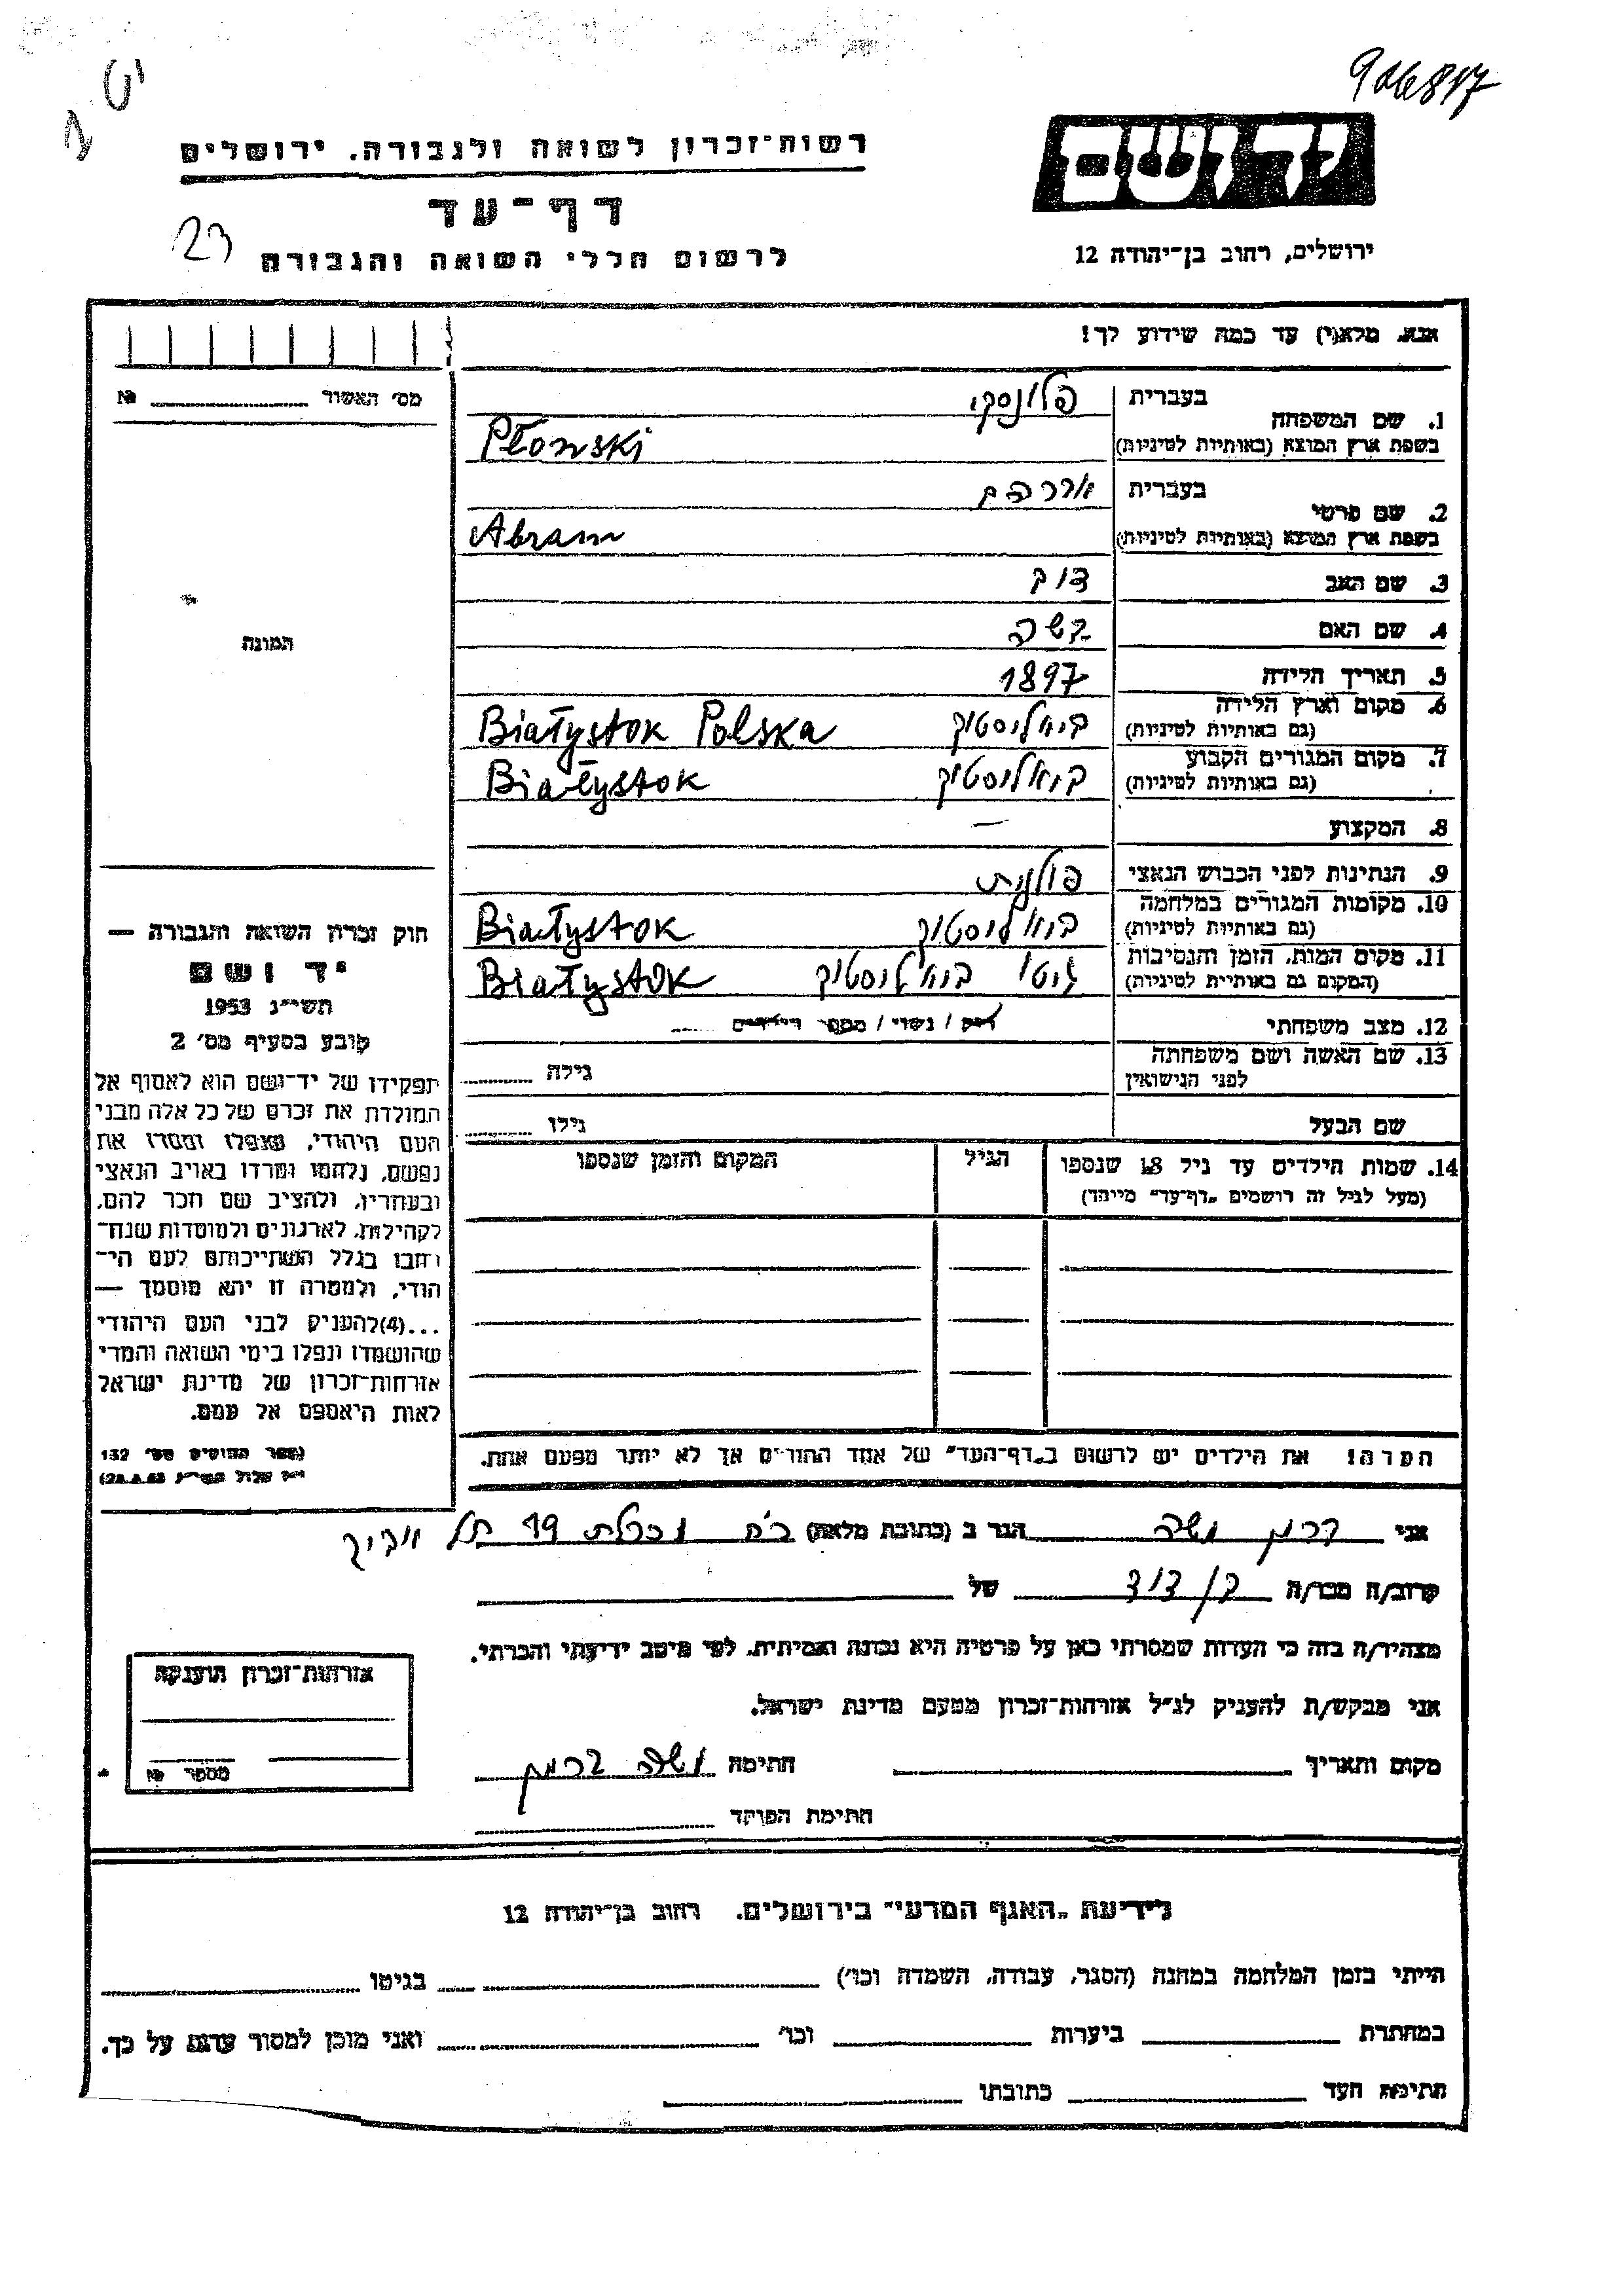 906817
רשות־זכרון לשואה ולגבורה. ירושלים
דף־עד
לרשום חללי השואה והגבורה
23
יד ושם
ירושלים, רחוב בן־יהודה 12
אנא, מלא(י) עד כמה שידוע לך!
מס׳ האשור №
1. שם המשפחה
בעברית פלונסקי
בשפת ארץ המוצא (באותיות לטיניות) Płonski
2. שם פרטי
בעברית אברהם
בשפת ארץ המוצא (באותיות לטיניות) Abram
3. שם האב דוב
4. שם האם
5. תאריך הלידה 1897
6. מקום וארץ הלידה
(גם באותיות לטיניות) ביאליסטוק Białystok Polska
7. מקום המגורים הקבוע
(גם באותיות לטיניות) ביאליסטוק Białystok
8. המקצוע —
9. הנתינות לפני הכבוש הנאצי פולנית
10. מקומות המגורים במלחמה
(גם באותיות לטיניות) ביאליסטוק Białystok
11. מקום המות, הזמן והנסיבות
(המקום גם באותיות לטיניות) גיטו ביאליסטוק Białystok
12. מצב משפחתי רווק / נשוי / מספר הילדים
13. שם האשה ושם משפחתה
לפני הנישואין גילה
שם הבעל גילו
14. שמות הילדים עד גיל 18 שנספו הגיל המקום והזמן שנספו
(מעל לגיל זה רושמים „דף־עד״ מיוחד)
הערה! את הילדים יש לרשום ב„דף־העד״ של אחד ההורים אך לא יותר מפעם אחת.
התמונה
חוק זכרון השואה והגבורה —
יד ושם
תשי״ג 1953
קובע בסעיף מס׳ 2
תפקידו של יד־ושם הוא לאסוף אל
המולדת את זכרם של כל אלה מבני
העם היהודי, שנפלו ומסרו את
נפשם, נלחמו ומרדו באויב הנאצי
ובעוזריו, ולהציב שם וזכר להם,
לקהילות, לארגונים ולמוסדות שנח־
רבו בגלל השתייכותם לעם הי־
הודי, ולמטרה זו יהא מוסמך —
...(4)להעניק לבני העם היהודי
שהושמדו ונפלו בימי השואה והמרי
אזרחות־זכרון של מדינת ישראל
לאות היאספם אל עמם.
(ספר החוקים מס׳ 132
אני ברמן משה הגר ב (כתובת מלאה) 19 תל אביב
קרוב/ה מכר/ה בן דוד של
מצהיר/ה בזה כי העדות שמסרתי כאן על פרטיה היא נכונה ואמיתית, לפי מיטב ידיעתי והכרתי.
אני מבקש/ת להעניק לנ״ל אזרחות־זכרון מטעם מדינת ישראל.
מקום ותאריך חתימה משה ברמן
חתימת הפוקד
אזרחות־זכרון הוענקה
מספר №
לידיעת „האגף המדעי״ בירושלים. רחוב בן־יהודה 12
הייתי בזמן המלחמה במחנה (הסגר, עבודה, השמדה וכו׳) בגיטו
במחתרת ביערות וכו׳ ואני מוכן למסור עדות על כך.
חתימת העד כתובתו